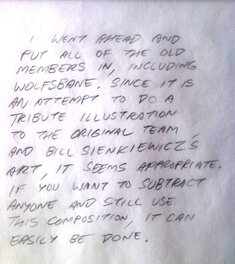 I WENT AHEAD AND
PUT ALL OF THE OLD
MEMBERS IN, INCLUDING
WOLFSBANE. SINCE IT IS
AN ATTEMPT TO DO A
TRIBUTE ILLUSTRATION
TO THE ORIGINAL TEAM
AND BILL SIENKIEWICZ'S
ART, IT SEEMS APPROPRIATE.
IF YOU WANT TO SUBTRACT
ANYONE AND STILL USE
THIS COMPOSITION, IT CAN
EASILY BE DONE.